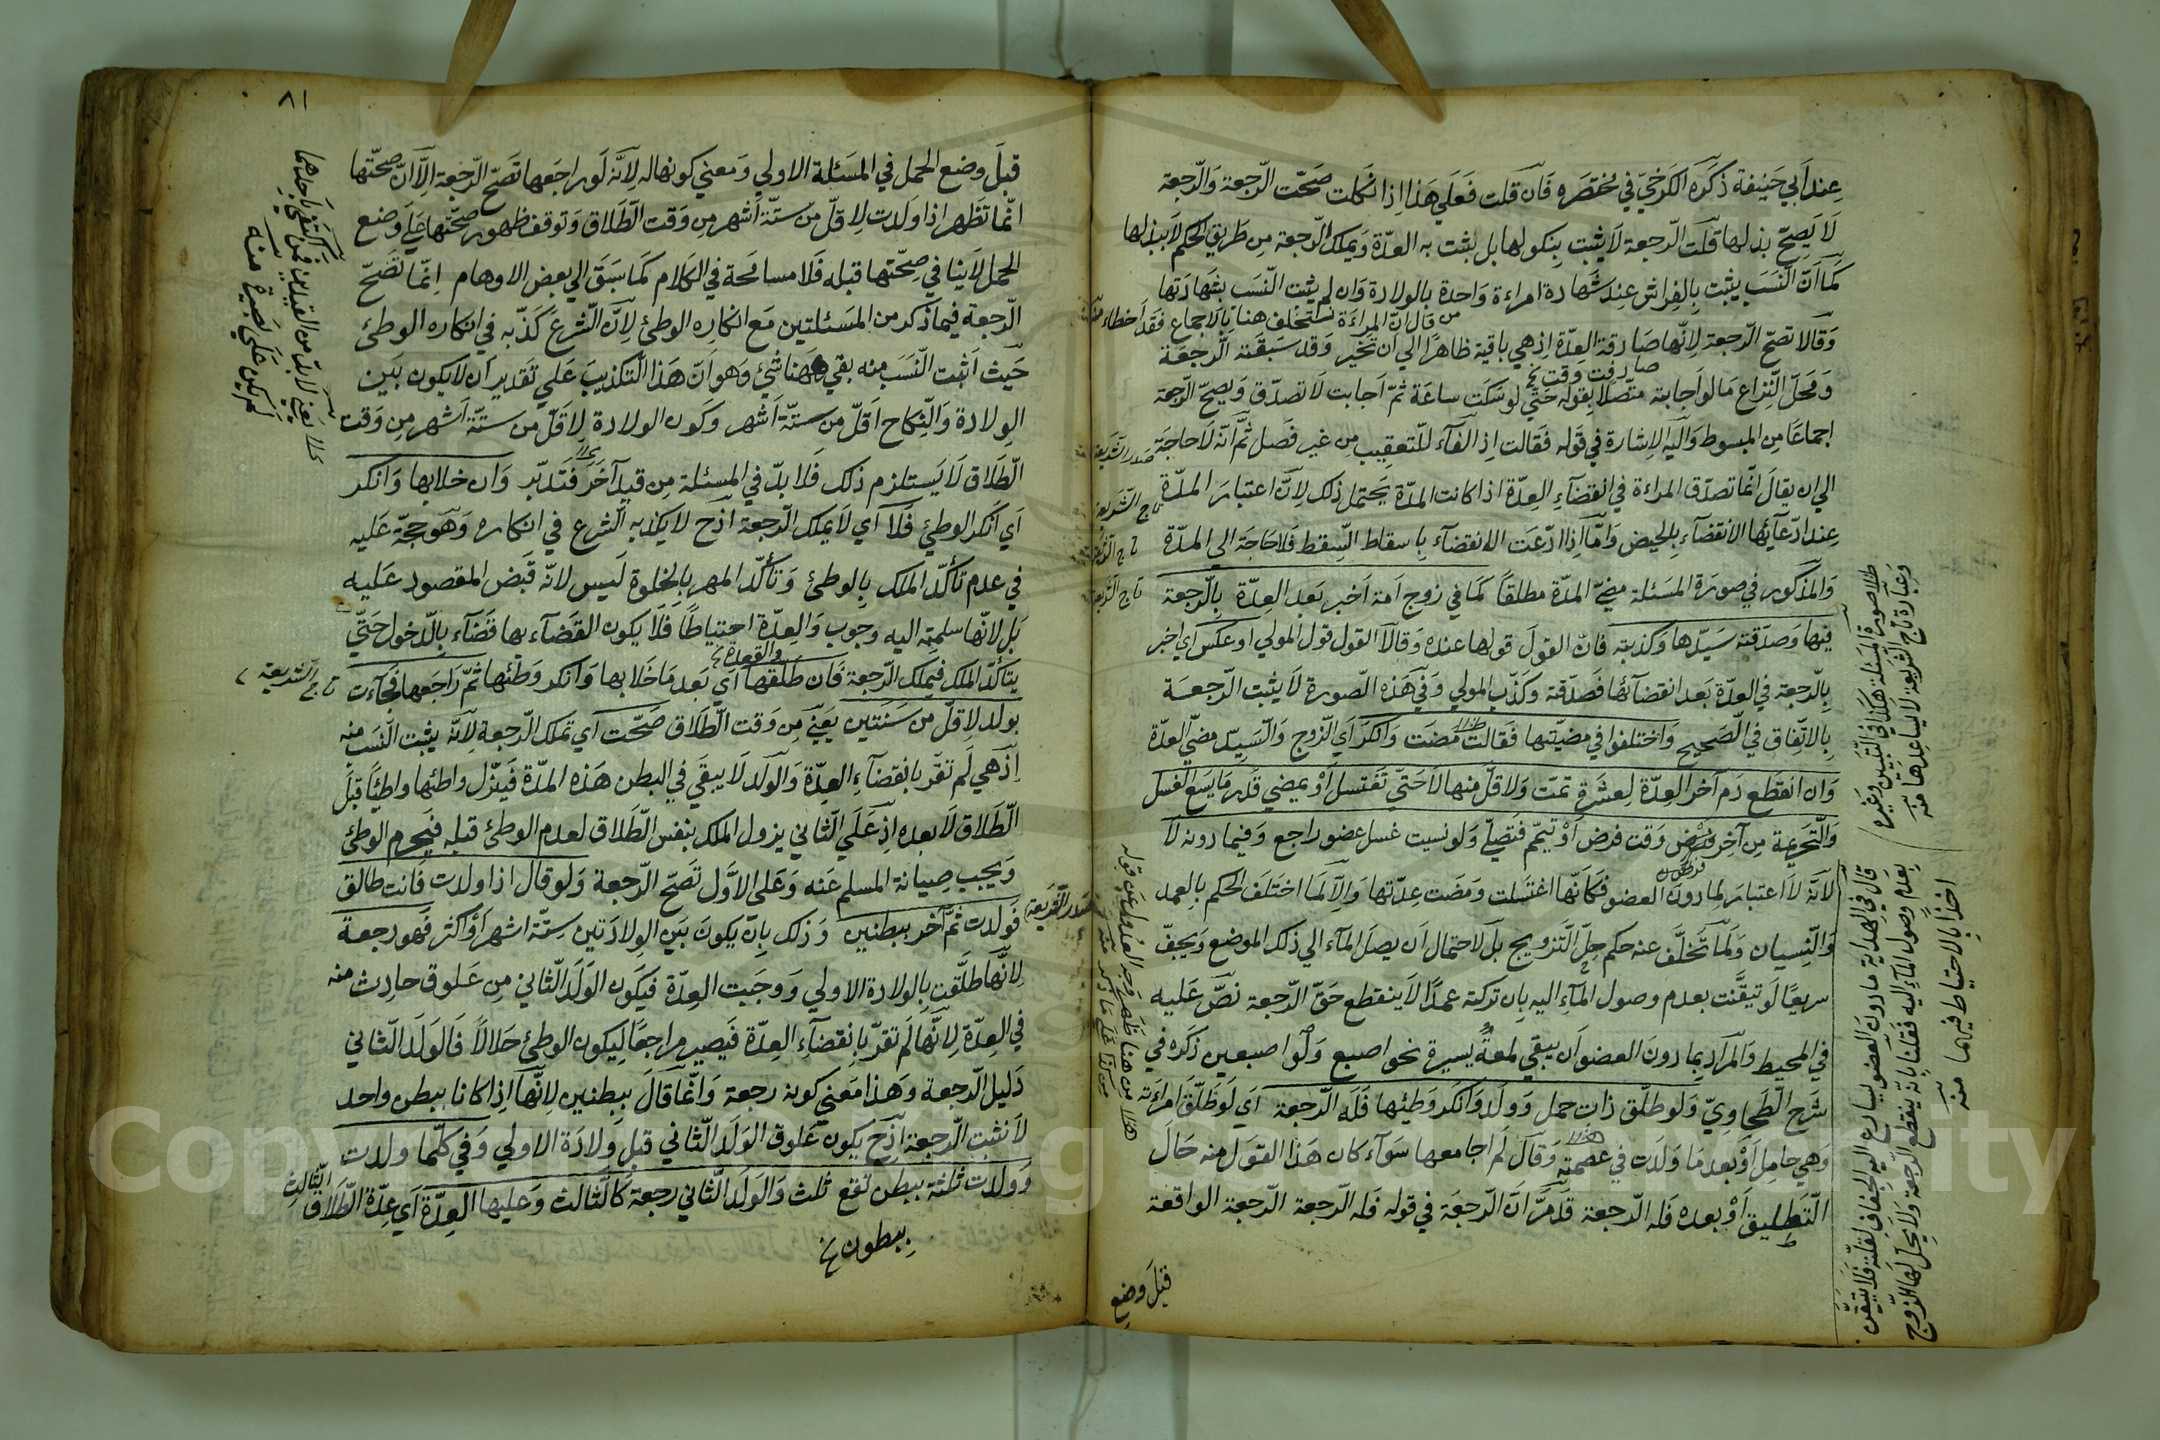 عند ابي حنيفة ذكره الكرخي في مختصره فان قلت فعلي هذا اذا نكلت صحت الرجعة والرجعة
لا يصح بذلها قلت الرجعة لا يثبت بنكولها بل يثبت به العدة ويملك الرجعة من طريق الحكم لا ببذلها
كما ان النسب يثبت بالفراش عند شهادة امراءة واحدة بالولادة وان لم يثبت النسب بشهادتها
من قال ان المراءة تستحلف هنا بالاجماع فقد اخطاء منه
وقالا تصح الرجعة لانها صادفة العدة اذ هي باقية ظاهرا الي ان تخبر وقد سبقته الرجعة
صادفت وقت
ومحل النزاع مالو اجابته متصلا بقوله حتي لو سكت ساعة ثم اجابت لا تصدق ويصح الرجعة
اجماعا من المبسوط واليه الاشارة في قوله فقالت اذ الفاء للتعقيب من غير فصل ثم انه لا حاجة
صدر الشريعة
الي ان يقال انما تصدق المراءة في انقضاء العدة اذا كانت المدة يحتمل ذلك لان اعتبار المدة
تاج الشريعة
عند ادعائها الانقضاء بالحيض واما اذا ادعت الانقضاء باسقاط السقط فلا حاجة الي المدة
تاج الشريعة
والمذكور في صورة المسئلة مضي المدة مطلقا كما في زوج امة اخبر بعد العدة بالرجعة
تاج الشريعة
فيها وصدقته سيدها وكذبته فان القول قولها عنده وقالا القول قول المولي او عكس اي اخبر
بالرجعة في العدة بعد انقضائها فصدقته وكذب المولي وفي هذه الصورة لا يثبت الرجعة
بالاتفاق في الصحيح واختلفوا في مضيتها فقالت مضت وانكر اي الزوج والسيد مضي العدة
وان انقطع دم آخر العدة لعشرة تمت ولاقل منها لا حتي تغتسل او يمضي قدر ما يسع الغسل
والتحريمة من آخر وقت فرض او تيمم فتصلي ولو نسيت غسل عضو راجع وفيما دونه لا
لانه لا اعتبار لما دون العضو فكانها اغتسلت ومضت عدتها والا لما اختلف الحكم بالعمد
والنسيان ولما تخلف عنه حكم حل التزويج بل لاحتمال ان يصل الماء الي ذلك الموضع ويجف
سريعا لو تيقنت بعدم وصول الماء اليه بان تركته عمدا لا ينقطع حق الرجعة نص عليه
في المحيط والمراد بما دون العضو ان يبقي لمعة يسيرة نحو اصبع ولو اصبعين ذكره في
شرح الطحاوي ولو طلق ذات حمل وولد وانكر وطئها فله الرجعة اي لو طلق امراءته
وهي حامل او بعد ما ولدت في عصمته وقال لم اجامعها سواء كان هذا القول منه حال
التطليق او بعده فله الرجعة قد مر ان الرجعة في قوله فله الرجعة الرجعة الواقعة
قبل وضع
هذا صورة المسئلة هكذا في التبيين وغيره
وعبارة تاج الشريعة لا يساعدها منه
قال في الهداية ما دون العضو يسارع اليه الجفاف لقلته فلا يتيقن
بعدم وصول الماء اليه فقلنا بانه ينقطع الرجعة ولا يحل لها الزوج
اخذا بالاحتياط فيهما منه
٨١
قبل وضع الحمل في المسئلة الاولي ومعني كونها له لانه لو راجعها تصح الرجعة الا ان صحتها
انما تظهر اذا ولدت لاقل من ستة اشهر من وقت الطلاق وتوقف ظهور صحتها علي وضع
الحمل لا ينافي صحتها قبله فلا مسامحة في الكلام كما سبق الي بعض الاوهام انما تصح
الرجعة فيما ذكر من المسئلتين مع انكاره الوطئ لان الشرع كذبه في انكاره الوطئ
حيث اثبت النسب منه بقي ههنا شئ وهو ان هذا التكذيب علي تقدير ان لا يكون بين
الولادة والنكاح اقل من ستة اشهر وكون الولادة لاقل من ستة اشهر من وقت
الطلاق لا يستلزم ذلك فلا بد في المسئلة من قيد آخر فتدبر وان خلا بها وانكر
اي انكر الوطئ فلا اي لا يملك الرجعة اذ ح لا يكذبه الشرع في انكاره وهو حجة عليه
في عدم تاكد الملك بالوطئ وتاكد المهر بالخلوة ليس لانه قبض المقصود عليه
بل لانها سلمته اليه وجوب والعدة احتياطا فلا يكون القضاء بها قضاء بالدخول حتي
يتاكد الملك فيملك الرجعة فان طلقها اي بعد ما خلا بها وانكر وطئها ثم راجعها فجاءت
تاج الشريعة
بولد لاقل من سنتين يعني من وقت الطلاق صحت اي تملك الرجعة لانه يثبت النسب منه
اذ هي لم تقر بانقضاء العدة والولد لا يبقي في البطن هذه المدة فينزل واطئها واطيا قبل
الطلاق لا بعده اذ علي الثاني يزول الملك بنفس الطلاق لعدم الوطئ قبله فيحرم الوطئ
ويجب صيانة المسلم عنه وعلي الاول تصح الرجعة ولو قال اذا ولدت فانت طالق
صدر الشريعة
فولدت ثم آخر ببطنين وذلك بان يكون بين الولادتين ستة اشهر او اكثر فهو رجعة
لانها طلقت بالولادة الاولي ووجبت العدة فيكون الولد الثاني من علوق حادث منه
في العدة لانها لم تقر بانقضاء العدة فيصير مراجعا ليكون الوطئ حلالا فالولد الثاني
دليل الرجعة وهذا معني كونه رجعة وانما قال ببطنين لانها اذا كانا ببطن واحد
لا تثبت الرجعة اذ ح يكون علوق الولد الثاني قبل ولادة الاولي وفي كلما ولدت
وولدت ثلثة ببطن تقع ثلث والولد الثاني رجعة كالثالث وعليها العدة اي عدة الطلاق
الثالث
ببطون
Copyright King Saud University